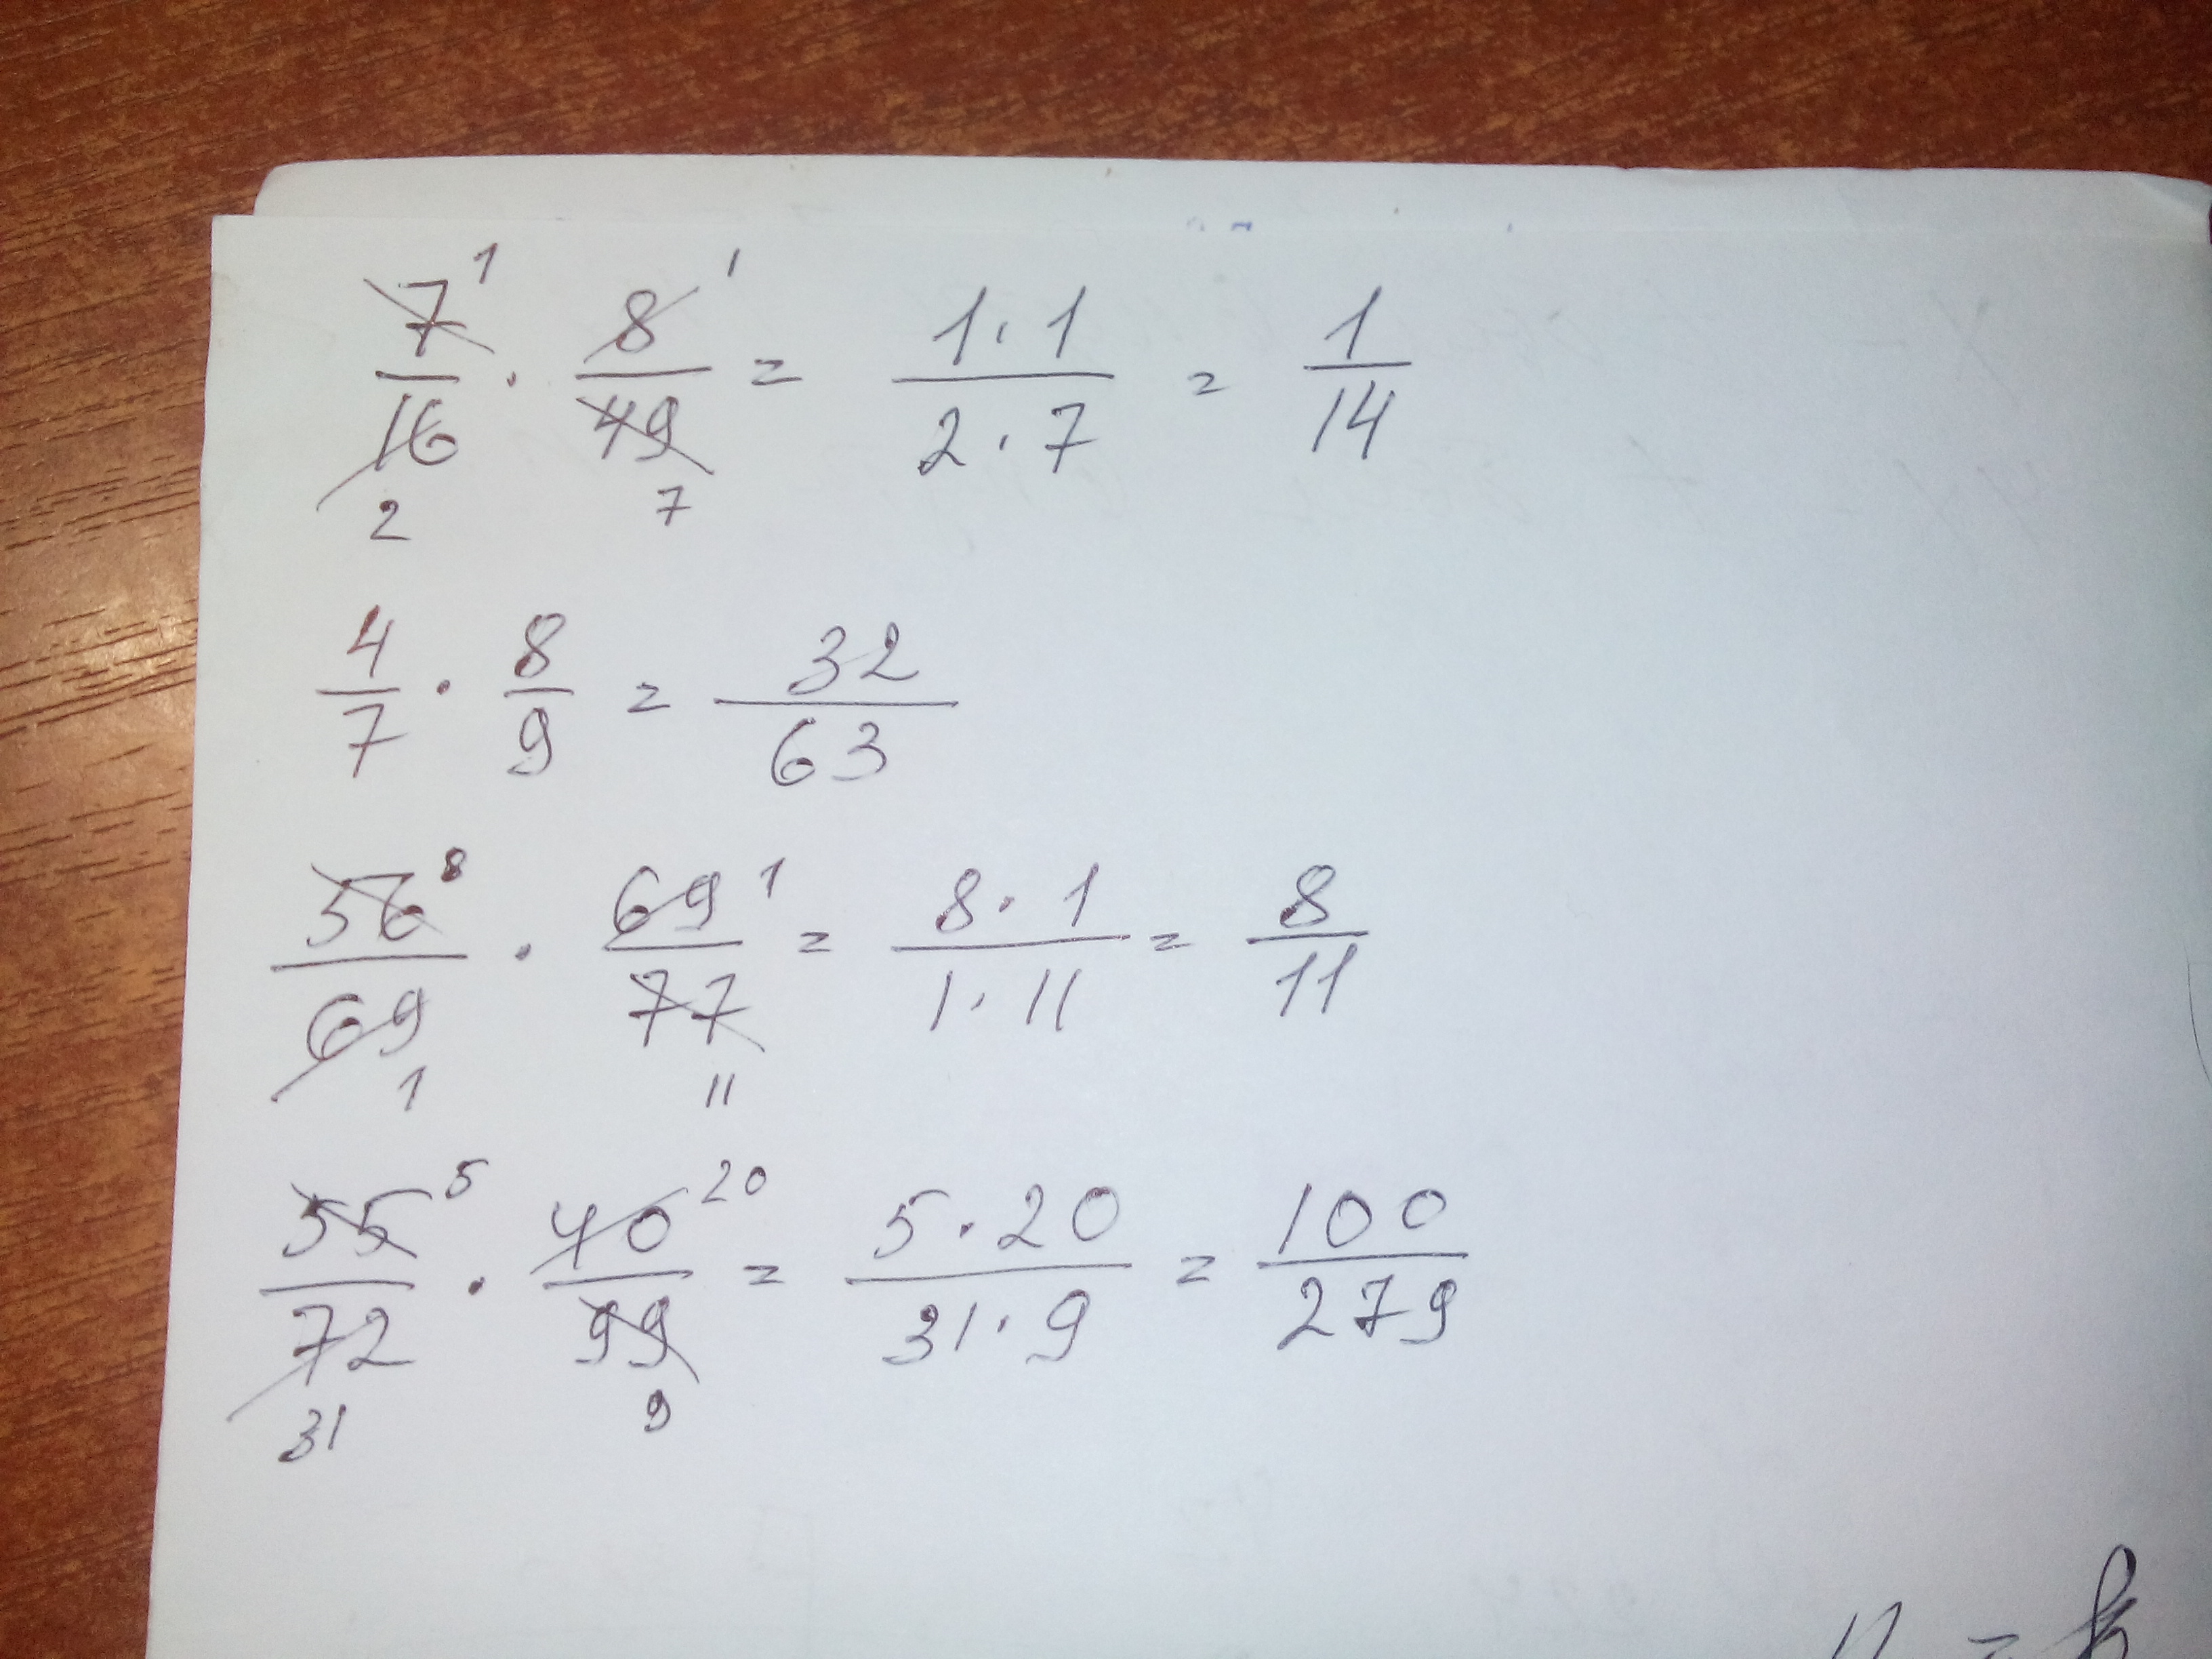 7/16 1 2 · 8/49 1 7 = 1·1/2·7 = 1/14
4/7 · 8/9 = 32/63
56/69 8 1 · 69/77 1 11 = 8·1/1·11 = 8/11
55/72 5 31 · 40/99 20 9 = 5·20/31·9 = 100/279